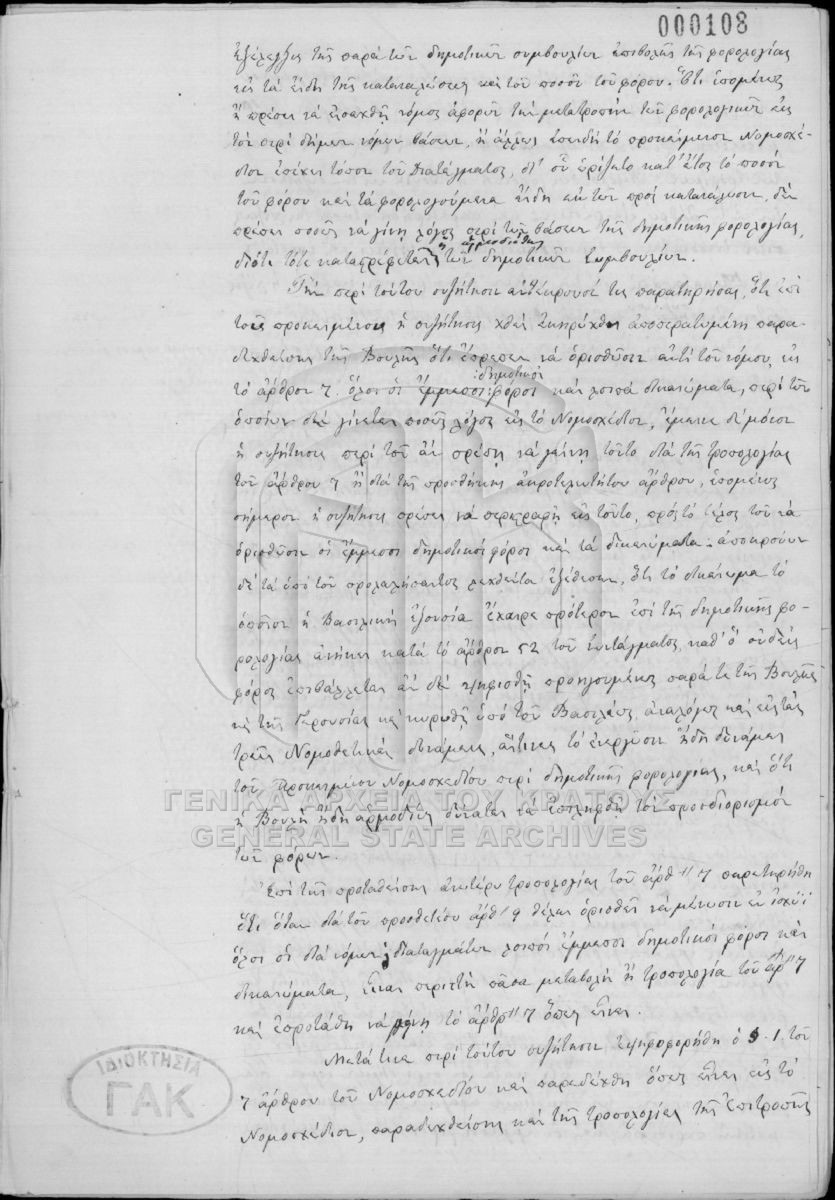 000108
ἐξέλεγξις τῆς παρὰ τῶν δημοτικῶν συμβουλίων ἐπιβολῆς τῆς φορολογίας
εἰς τὰ εἴδη τῆς καταναλώσεως καὶ τοῦ ποσοῦ τοῦ φόρου. Ὅτι ἑπομένως
ἢ πρέπει νὰ εἰσαχθῇ νόμος ἀφορῶν τὴν μετατροπὴν τῶν φορολογικῶν εἰς
τὸν περὶ δήμων νόμον βάσεων, ἢ ἄλλως ἐπειδὴ τὸ προκείμενον Νομοσχέ-
διον ἐπέχει τόπον τοῦ Διατάγματος, δι' οὗ ὡρίζετο κατ' ἔτος τὸ ποσὸν
τοῦ φόρου καὶ τὰ φορολογούμενα εἴδη ἐκ τῶν πρὸς κατανάλωσιν, δὲν
πρέπει ποσῶς νὰ γίνῃ λόγος περὶ τῶν βάσεων τῆς δημοτικῆς φορολογίας,
διότι τότε καταστρέφεται ἡ ἁρμοδιότης τῶν δημοτικῶν Συμβουλίων.
Τὴν περὶ τούτου συζήτησιν ἀντέκρουσέ τις παρατηρήσας, ὅτι ἐπὶ
τοῦ προκειμένου ἡ συζήτησις χθὲς ἐκηρύχθη ἀποπερατωμένη παρα-
δεχθείσης τῆς Βουλῆς ὅτι ἔπρεπε νὰ ὁρισθῶσιν ἀντὶ τοῦ νόμου εἰς
τὸ ἄρθρον 7. ὅλοι οἱ ἔμμεσοι δημοτικοὶ φόροι καὶ λοιπὰ δικαιώματα, περὶ τῶν
ὁποίων δὲν γίνεται ποσῶς λόγος εἰς τὸ Νομοσχέδιον, ἔμεινε δὲ μόνον
ἡ συζήτησις περὶ τοῦ ἂν πρέπῃ νὰ γείνῃ τοῦτο διὰ τῆς τροπολογίας
τοῦ ἄρθρου 7 ἢ διὰ τῆς προσθήκης ἀκροτελευτήτου ἄρθρου, ἑπομένως
σήμερον ἡ συζήτησις πρέπει νὰ περιγραφῇ εἰς τοῦτο, πρὸς τὸ τέλος τοῦ νὰ
ὁρισθῶσιν οἱ ἔμμεσοι δημοτικοὶ φόροι καὶ τὰ δικαιώματα· ἀποκρούων
δὲ τὰ ὑπὸ τοῦ προλαλήσαντος λεχθέντα ἐξέθεσεν, ὅτι τὸ δικαίωμα τὸ
ὁποῖον ἡ Βασιλικὴ ἐξουσία ἔχαιρε πρότερον ἐπὶ τῆς δημοτικῆς φο-
ρολογίας ἀνῆκει κατὰ τὸ ἄρθρον 52 τοῦ Συντάγματος, καθ' ὃ οὐδεὶς
φόρος ἐπιβάλλεται ἂν δὲν ψηφισθῇ προηγουμένως παρά τε τῆς Βουλῆς
καὶ τῆς Γερουσίας καὶ κυρωθῇ ὑπὸ τοῦ Βασιλέως, ἀναλόγως καὶ εἰς τὰς
τρεῖς Νομοθετικὰς δυνάμεις, αἵτινες τὸ ἐνεργοῦσιν ἤδη δυνάμει
τοῦ προκειμένου Νομοσχεδίου περὶ δημοτικῆς φορολογίας, καὶ ὅτι
ἡ Βουλὴ ἤδη ἁρμοδίως δύναται νὰ ἐκπληρώσῃ τὸν προσδιορισμὸν
τῶν φόρων.
Ἐπὶ τῆς προταθείσης ἀνωτέρω τροπολογίας τοῦ ἄρθρ. 7 παρετηρήθη
ὅτι ὅταν διὰ τοῦ προσθετέου ἄρθρ. 9 θέλει ὁρισθῇ νὰ μένωσιν ἐν ἰσχύϊ
ὅλοι οἱ διὰ νόμων, διαταγμάτων λοιποὶ ἔμμεσοι δημοτικοὶ φόροι καὶ
δικαιώματα, εἶναι περιττὴ πᾶσα μεταβολὴ ἢ τροπολογία τοῦ ἄρθρ. 7
καὶ ἐπροτάθη νὰ μείνῃ τὸ ἄρθρ. 7 ὅπως εἶναι.
Μετά τινα περὶ τούτου συζήτησιν ἐψηφοφορήθη ὁ §. 1. τοῦ
7 ἄρθρου τοῦ Νομοσχεδίου καὶ παρεδέχθη ὅπως εἶναι εἰς τὸ
Νομοσχέδιον, παραδεχθείσης καὶ τῆς τροπολογίας τῆς Ἐπιτροπῆς
ΓΕΝΙΚΑ ΑΡΧΕΙΑ ΤΟΥ ΚΡΑΤΟΥΣ
GENERAL STATE ARCHIVES
ΙΔΙΟΚΤΗΣΙΑ
ΓΑΚ